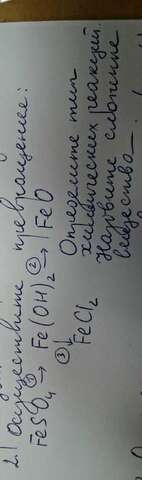 2.) Осуществите превращение:
FeSO₄ ①→ Fe(OH)₂ ②→ FeO
③↓
FeCl₂
Определите тип
химических реакций.
Назовите сложные
вещества.